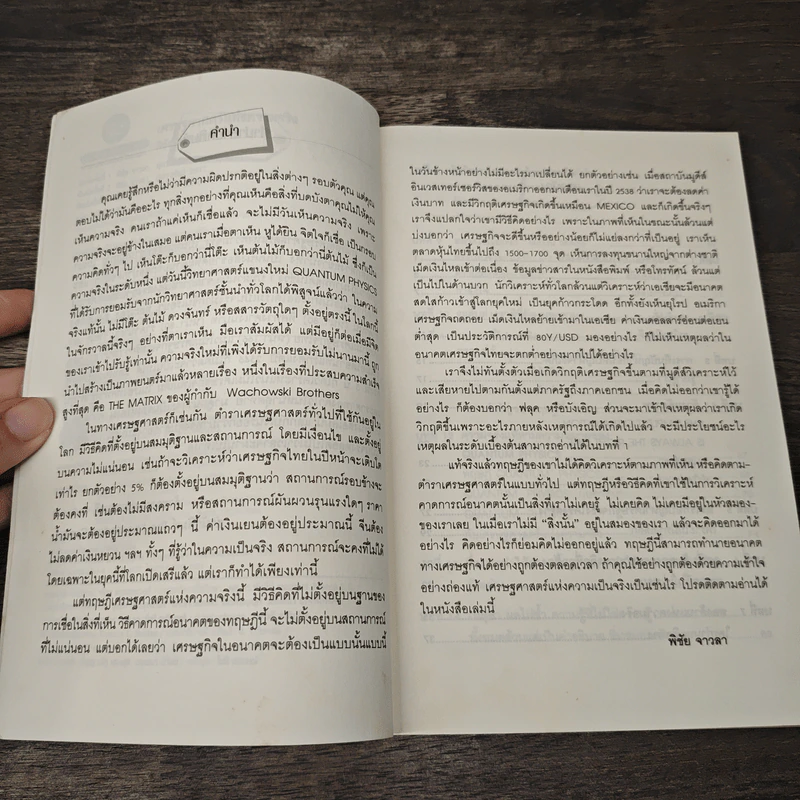 คำนำ
คุณเคยรู้สึกหรือไม่ว่ามีความผิดปรกติอยู่ในสิ่งต่างๆ รอบตัวคุณ แต่คุณ
ตอบไม่ได้ว่ามันคืออะไร ทุกสิ่งทุกอย่างที่คุณเห็นคือสิ่งที่บดบังตาคุณไม่ให้คุณ
เห็นความจริง คนเราถ้าแค่เห็นก็เชื่อแล้ว จะไม่มีวันเห็นความจริง เพราะ
ความจริงจะอยู่ข้างในเสมอ แต่คนเราเมื่อตาเห็น หูได้ยิน จิตใจก็เชื่อ เป็นกรอบ
ความคิดทั่วๆ ไป เห็นโต๊ะก็บอกว่านี่โต๊ะ เห็นต้นไม้ก็บอกว่านี่ต้นไม้ ซึ่งก็เป็น
ความจริงในระดับหนึ่ง แต่วันนี้วิทยาศาสตร์แขนงใหม่ QUANTUM PHYSICS
ที่ได้รับการยอมรับจากนักวิทยาศาสตร์ชั้นนำทั่วโลกได้พิสูจน์แล้วว่า ในความ
จริงแท้นั้น ไม่มีโต๊ะ ต้นไม้ ดวงจันทร์ หรือสสารวัตถุใดๆ ตั้งอยู่ตรงนี้ ในโลกนี้
ในจักรวาลนี้จริงๆ อย่างที่ตาเราเห็น มือเราสัมผัสได้ แต่มีอยู่ก็ต่อเมื่อมีจิต
ของเราเข้าไปรับรู้เท่านั้น ความจริงใหม่ที่เพิ่งได้รับการยอมรับไม่นานมานี้ ถูก
นำไปสร้างเป็นภาพยนตร์มาแล้วหลายเรื่อง หนึ่งในเรื่องที่ประสบความสำเร็จ
สูงที่สุด คือ THE MATRIX ของผู้กำกับ Wachowski Brothers
ในทางเศรษฐศาสตร์ก็เช่นกัน ตำราเศรษฐศาสตร์ทั่วไปที่ใช้กันอยู่ใน
โลก มีวิธีคิดที่ตั้งอยู่บนสมมุติฐานและสถานการณ์ โดยมีเงื่อนไข และตั้งอยู่
บนความไม่แน่นอน เช่นถ้าจะวิเคราะห์ว่าเศรษฐกิจไทยในปีหน้าจะเติบโต
เท่าไร ยกตัวอย่าง 5% ก็ต้องตั้งอยู่บนสมมุติฐานว่า สถานการณ์รอบข้างจะ
ต้องคงที่ เช่นต้องไม่มีสงคราม หรือสถานการณ์ผันผวนรุนแรงใดๆ ราคา
น้ำมันจะต้องอยู่ประมาณแถวๆ นี้ ค่าเงินเยนต้องอยู่ประมาณนี้ จีนต้อง
ไม่ลดค่าเงินหยวน ฯลฯ ทั้งๆ ที่รู้ว่าในความเป็นจริง สถานการณ์จะคงที่ไม่ได้
โดยเฉพาะในยุคนี้ที่โลกเปิดเสรีแล้ว แต่เราก็ทำได้เพียงเท่านี้
แต่ทฤษฎีเศรษฐศาสตร์แห่งความจริงนี้ มีวิธีคิดที่ไม่ตั้งอยู่บนฐานของ
การเชื่อในสิ่งที่เห็น วิธีคาดการณ์อนาคตของทฤษฎีนี้ จะไม่ตั้งอยู่บนสถานการณ์
ที่ไม่แน่นอน แต่บอกได้เลยว่า เศรษฐกิจในอนาคตจะต้องเป็นแบบนั้นแบบนี้
ในวันข้างหน้าอย่างไม่มีอะไรมาเปลี่ยนได้ ยกตัวอย่างเช่น เมื่อสถาบันมูดีส์
อินเวสเทอร์เซอร์วิสของอเมริกาออกมาเตือนเราในปี 2538 ว่าเราจะต้องลดค่า
เงินบาท และมีวิกฤติเศรษฐกิจเกิดขึ้นเหมือน MEXICO และก็เกิดขึ้นจริงๆ
เราจึงแปลกใจว่าเขามีวิธีคิดอย่างไร เพราะในภาพที่เห็นในขณะนั้นล้วนแต่
บ่งบอกว่า เศรษฐกิจจะดีขึ้นหรืออย่างน้อยก็ไม่แย่ลงกว่าที่เป็นอยู่ เราเห็น
ตลาดหุ้นไทยขึ้นไปถึง 1500-1700 จุด เห็นการลงทุนขนานใหญ่จากต่างชาติ
เม็ดเงินไหลเข้าต่อเนื่อง ข้อมูลข่าวสารในหนังสือพิมพ์ หรือโทรทัศน์ ล้วนแต่
เป็นไปในด้านบวก นักวิเคราะห์ทั่วโลกล้วนแต่วิเคราะห์ว่าเอเชียจะมีอนาคต
สดใสก้าวเข้าสู่โลกยุคใหม่ เป็นยุคก้าวกระโดด อีกทั้งยังเห็นยุโรป อเมริกา
เศรษฐกิจถดถอย เม็ดเงินไหลย้ายเข้ามาในเอเชีย ค่าเงินดอลลาร์อ่อนต่อเยน
ต่ำสุด เป็นประวัติการณ์ที่ 80Y/USD มองอย่างไร ก็ไม่เห็นเหตุผลว่าใน
อนาคตเศรษฐกิจไทยจะตกต่ำอย่างมากไปได้อย่างไร
เราจึงไม่ทันตั้งตัวเมื่อเกิดวิกฤติเศรษฐกิจขึ้นตามที่มูดีส์วิเคราะห์ไว้
และเสียหายไปตามกันตั้งแต่ภาครัฐถึงภาคเอกชน เมื่อคิดไม่ออกว่าเขารู้ได้
อย่างไร ก็ต้องบอกว่า ฟลุค หรือบังเอิญ ส่วนจะมาเข้าใจเหตุผลว่าเราเกิด
วิกฤติขึ้นเพราะอะไรภายหลังเหตุการณ์ได้เกิดไปแล้ว จะมีประโยชน์อะไร
เหตุผลในระดับเบื้องต้นสามารถอ่านได้ในบทที่ 1
แท้จริงแล้วทฤษฎีของเขาไม่ได้คิดวิเคราะห์ตามภาพที่เห็น หรือคิดตาม-
ตำราเศรษฐศาสตร์ในแบบทั่วไป แต่ทฤษฎีหรือวิธีคิดที่เขาใช้ในการวิเคราะห์
คาดการณ์อนาคตนั้นเป็นสิ่งที่เราไม่เคยรู้ ไม่เคยคิด ไม่เคยมีอยู่ในหัวสมอง-
ของเราเลย ในเมื่อเราไม่มี “สิ่งนั้น” อยู่ในสมองของเรา แล้วจะคิดออกมาได้
อย่างไร คิดอย่างไรก็ย่อมคิดไม่ออกอยู่แล้ว ทฤษฎีนี้สามารถทำนายอนาคต
ทางเศรษฐกิจได้อย่างถูกต้องตลอดเวลา ถ้าคุณใช้อย่างถูกต้องด้วยความเข้าใจ
อย่างถ่องแท้ เศรษฐศาสตร์แห่งความจริงเป็นเช่นไร โปรดติดตามอ่านได้
ในหนังสือเล่มนี้
พิชัย จาวลา